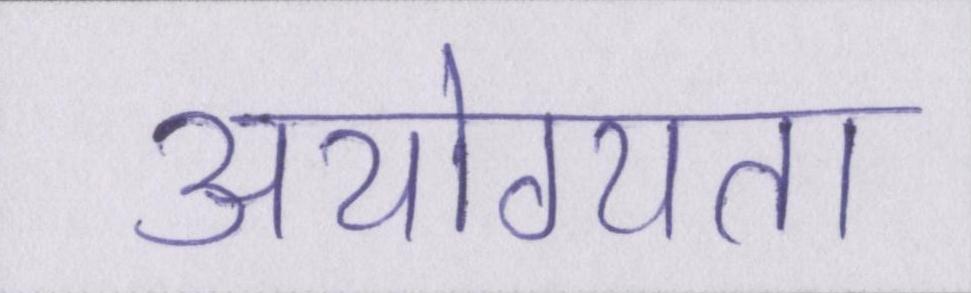 अयोग्यता